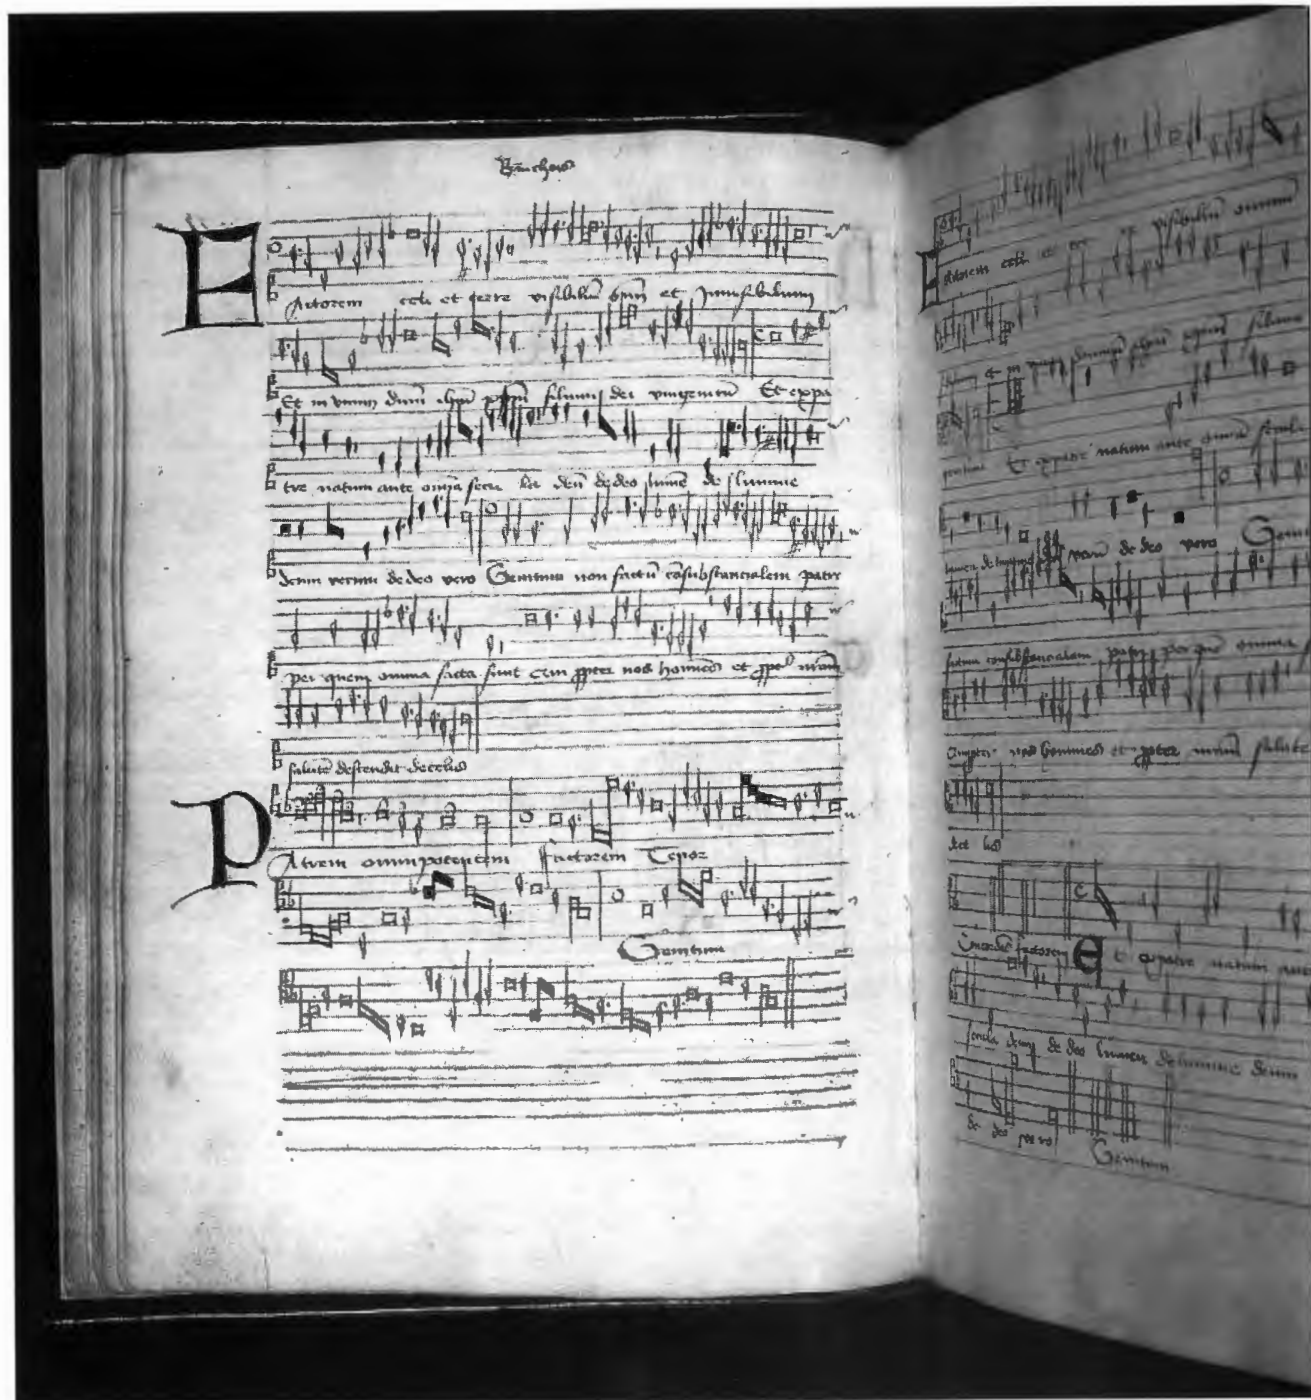 Binchois
Factorem celi et terre visibiliū oīm et Invisibilium
Et in vnum dnm ihm xpm filium dei vnigenitū Et ex pa
tre natum ante omīa secu la deū de deo lumē de lumine
deum verum de deo vero Genitum non factū cōsubstancialem patri
per quem omnia facta sunt Qui ppter nos homines et ppter nrām
salutē descendit de celis
Patrem omnipotentem Factorem Tenor
Genitum
Factorem celi et visibiliū omnium
Et in dnm ihm xpm filium
Et ex patre natum ante omīa secula
lumen de lumine verū de deo vero Genitum
factum consubstancialem patri per quē omnia
Qui ppter nos homines et ppter nrām salutē
de ce lis
factorem Et ex patre natum ante
secula deum de deo lumen de lumine deum
de deo vero Genitum